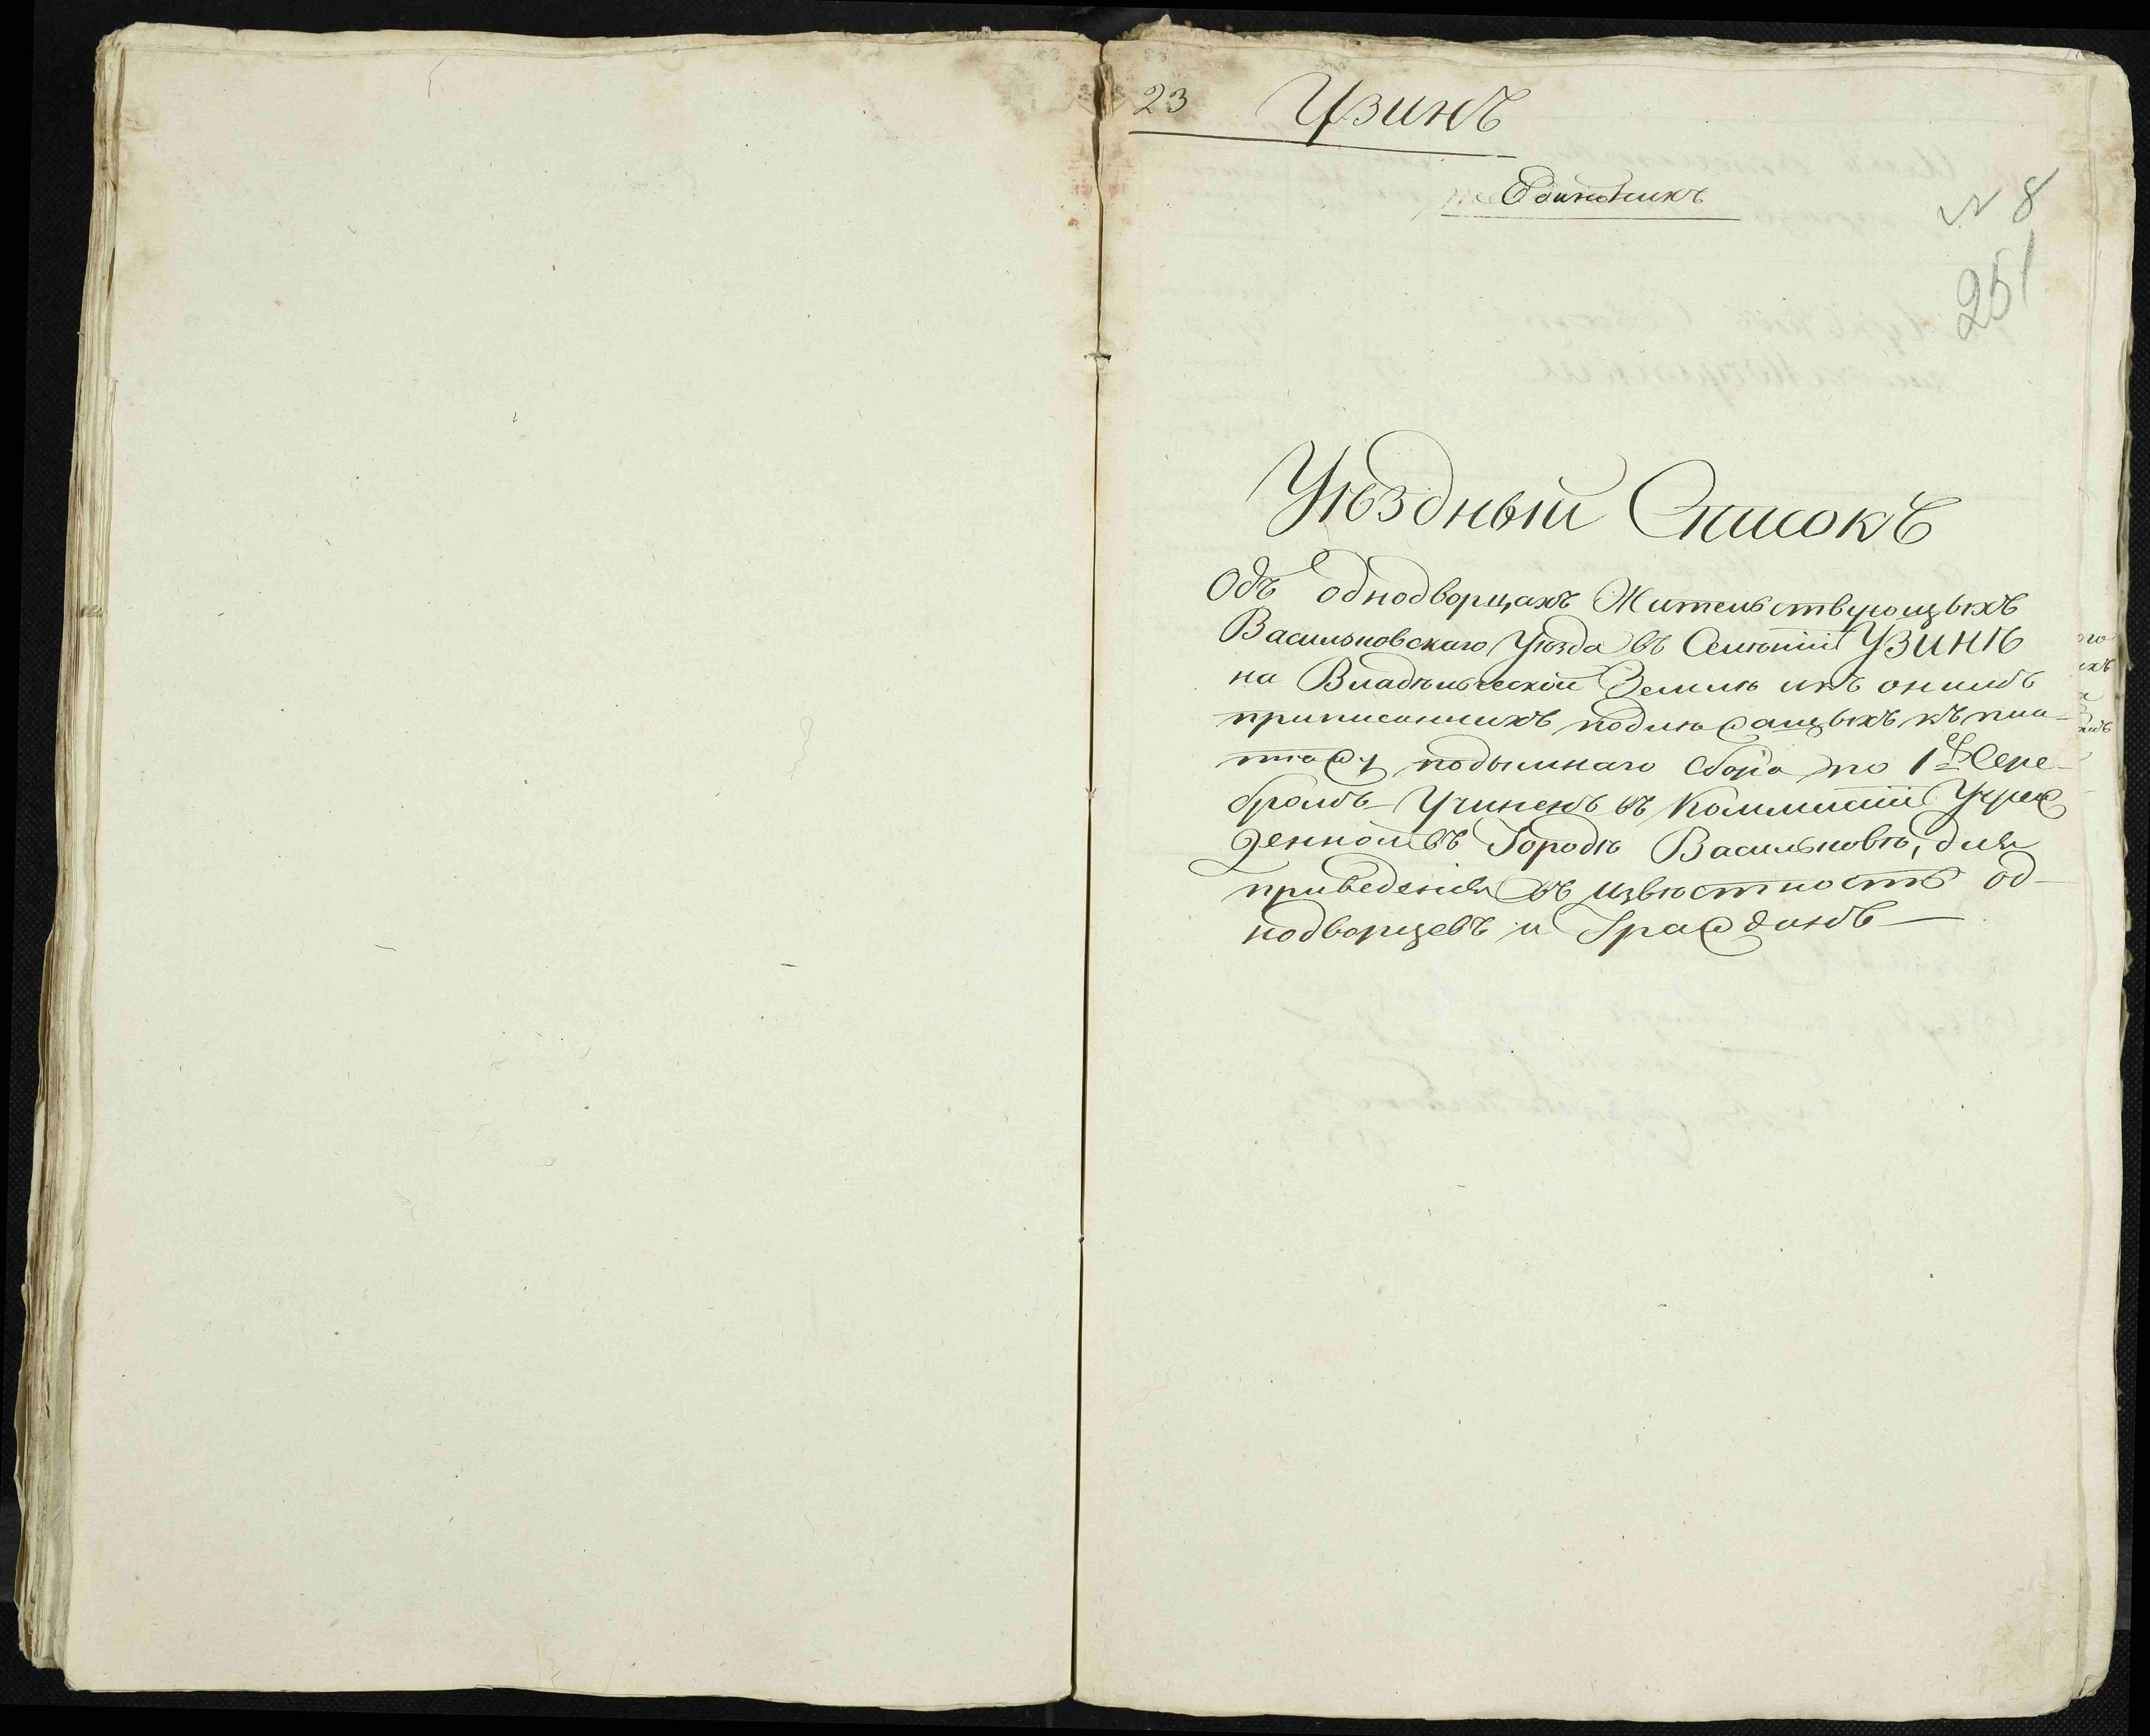 23 Узинъ
№ 8
251
Уѣздный Списокъ
Объ однодворцахъ Жительствующыхъ
Васильковскаго Уѣзда въ Селѣніи УЗИНѢ
на Владѣльческой Землѣ
приписанныхъ подлежащыхъ къ пла-
тежу подымнаго сбора по 1 Сере-
бромъ Учиненъ въ Коммисіи Учреж
денной въ Городѣ Васильковѣ, для
приведенія въ извѣстность од-
нодворцевъ и Гражданъ